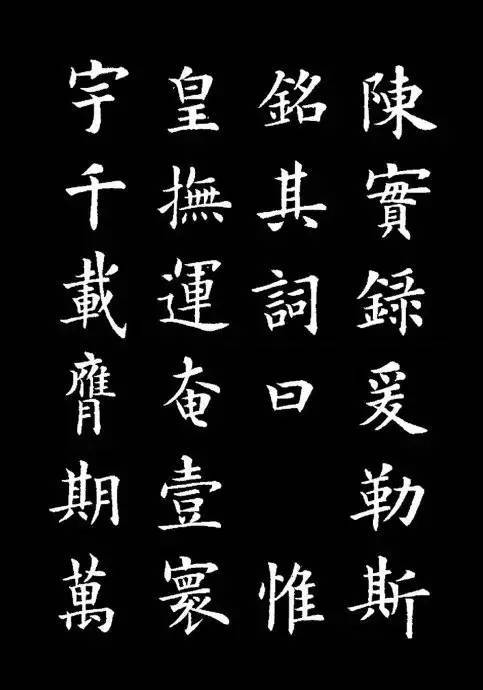 陳實録爰勒斯
銘其詞曰 惟
皇撫運奄壹寰
宇千載膺期萬